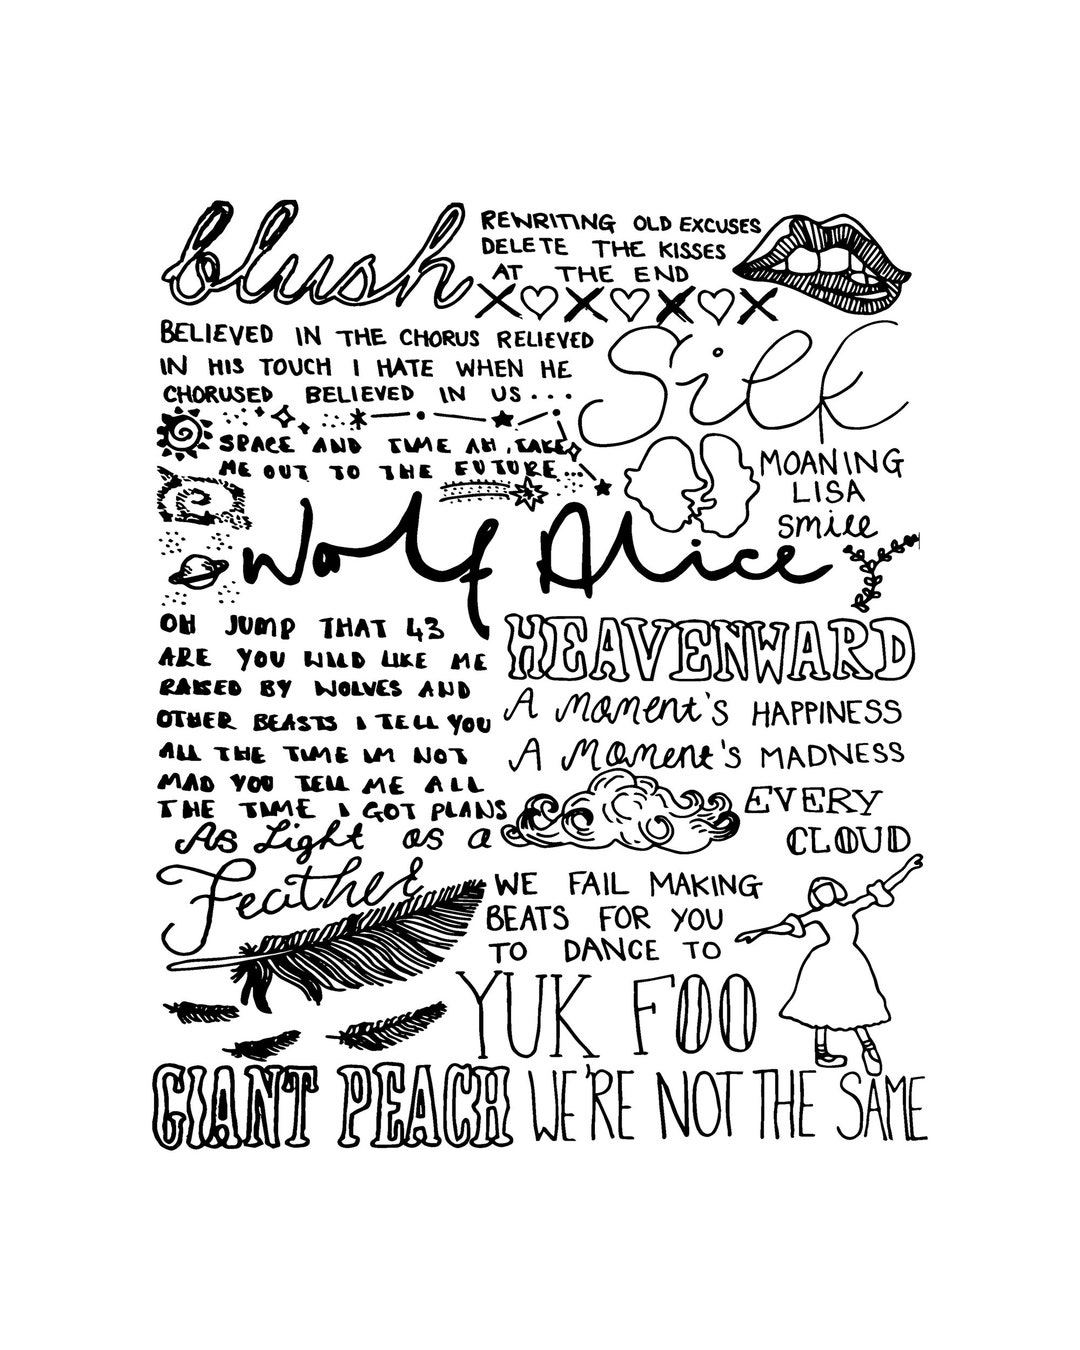 blush
REWRITING OLD EXCUSES
DELETE THE KISSES
AT THE END
X♡X♡X♡X
BELIEVED IN THE CHORUS RELIEVED
IN HIS TOUCH I HATE WHEN HE
CHORUSED BELIEVED IN US...
Silk
SPACE AND TIME AH, TAKE
ME OUT TO THE FUTURE...
MOANING
LISA
smile
Wolf Alice
OH JUMP THAT 43
ARE YOU WILD LIKE ME
RAISED BY WOLVES AND
OTHER BEASTS I TELL YOU
ALL THE TIME IM NOT
MAD YOU TELL ME ALL
THE TIME I GOT PLANS
HEAVENWARD
A Moment's HAPPINESS
A Moment's MADNESS
EVERY
CLOUD
As Light as a
Feather
WE FAIL MAKING
BEATS FOR YOU
TO DANCE TO
YUK FOO
GIANT PEACH WE'RE NOT THE SAME